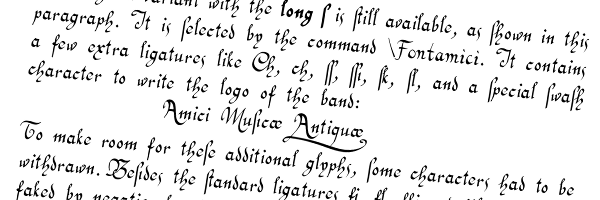 variant with the long ſ is ſtill available, as ſhown in this
paragraph. It is ſelected by the command \Fontamici. It contains
a few extra ligatures like Ch, ch, ſſ, ſſi, ſk, ſl, and a ſpecial ſwaſh
character to write the logo of the band:
Amici Muſicæ Antiquæ
To make room for theſe additional glyphs, ſome characters had to be
withdrawn. Beſides the ſtandard ligatures fi, fl,
faked by